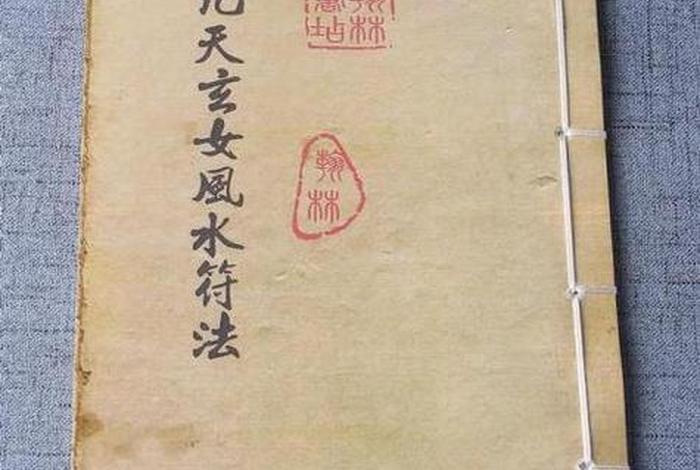 九天玄女風水符法
翰林